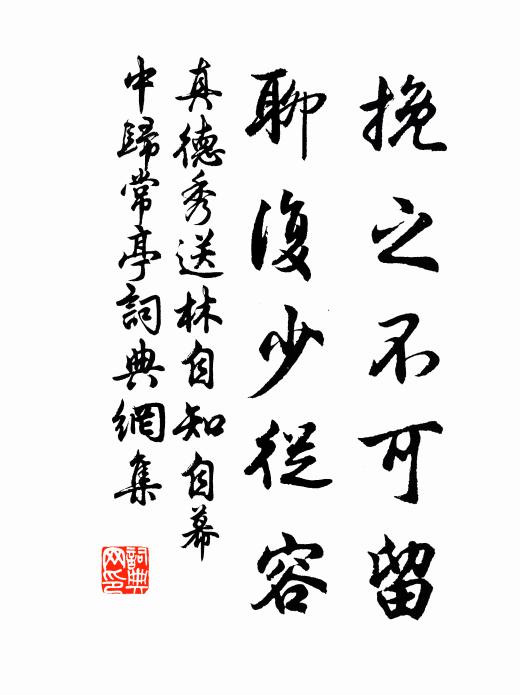 挽之不可留
聊復少從容
真德秀送林自知自幕
中歸常亭詞典網集
詞典網印